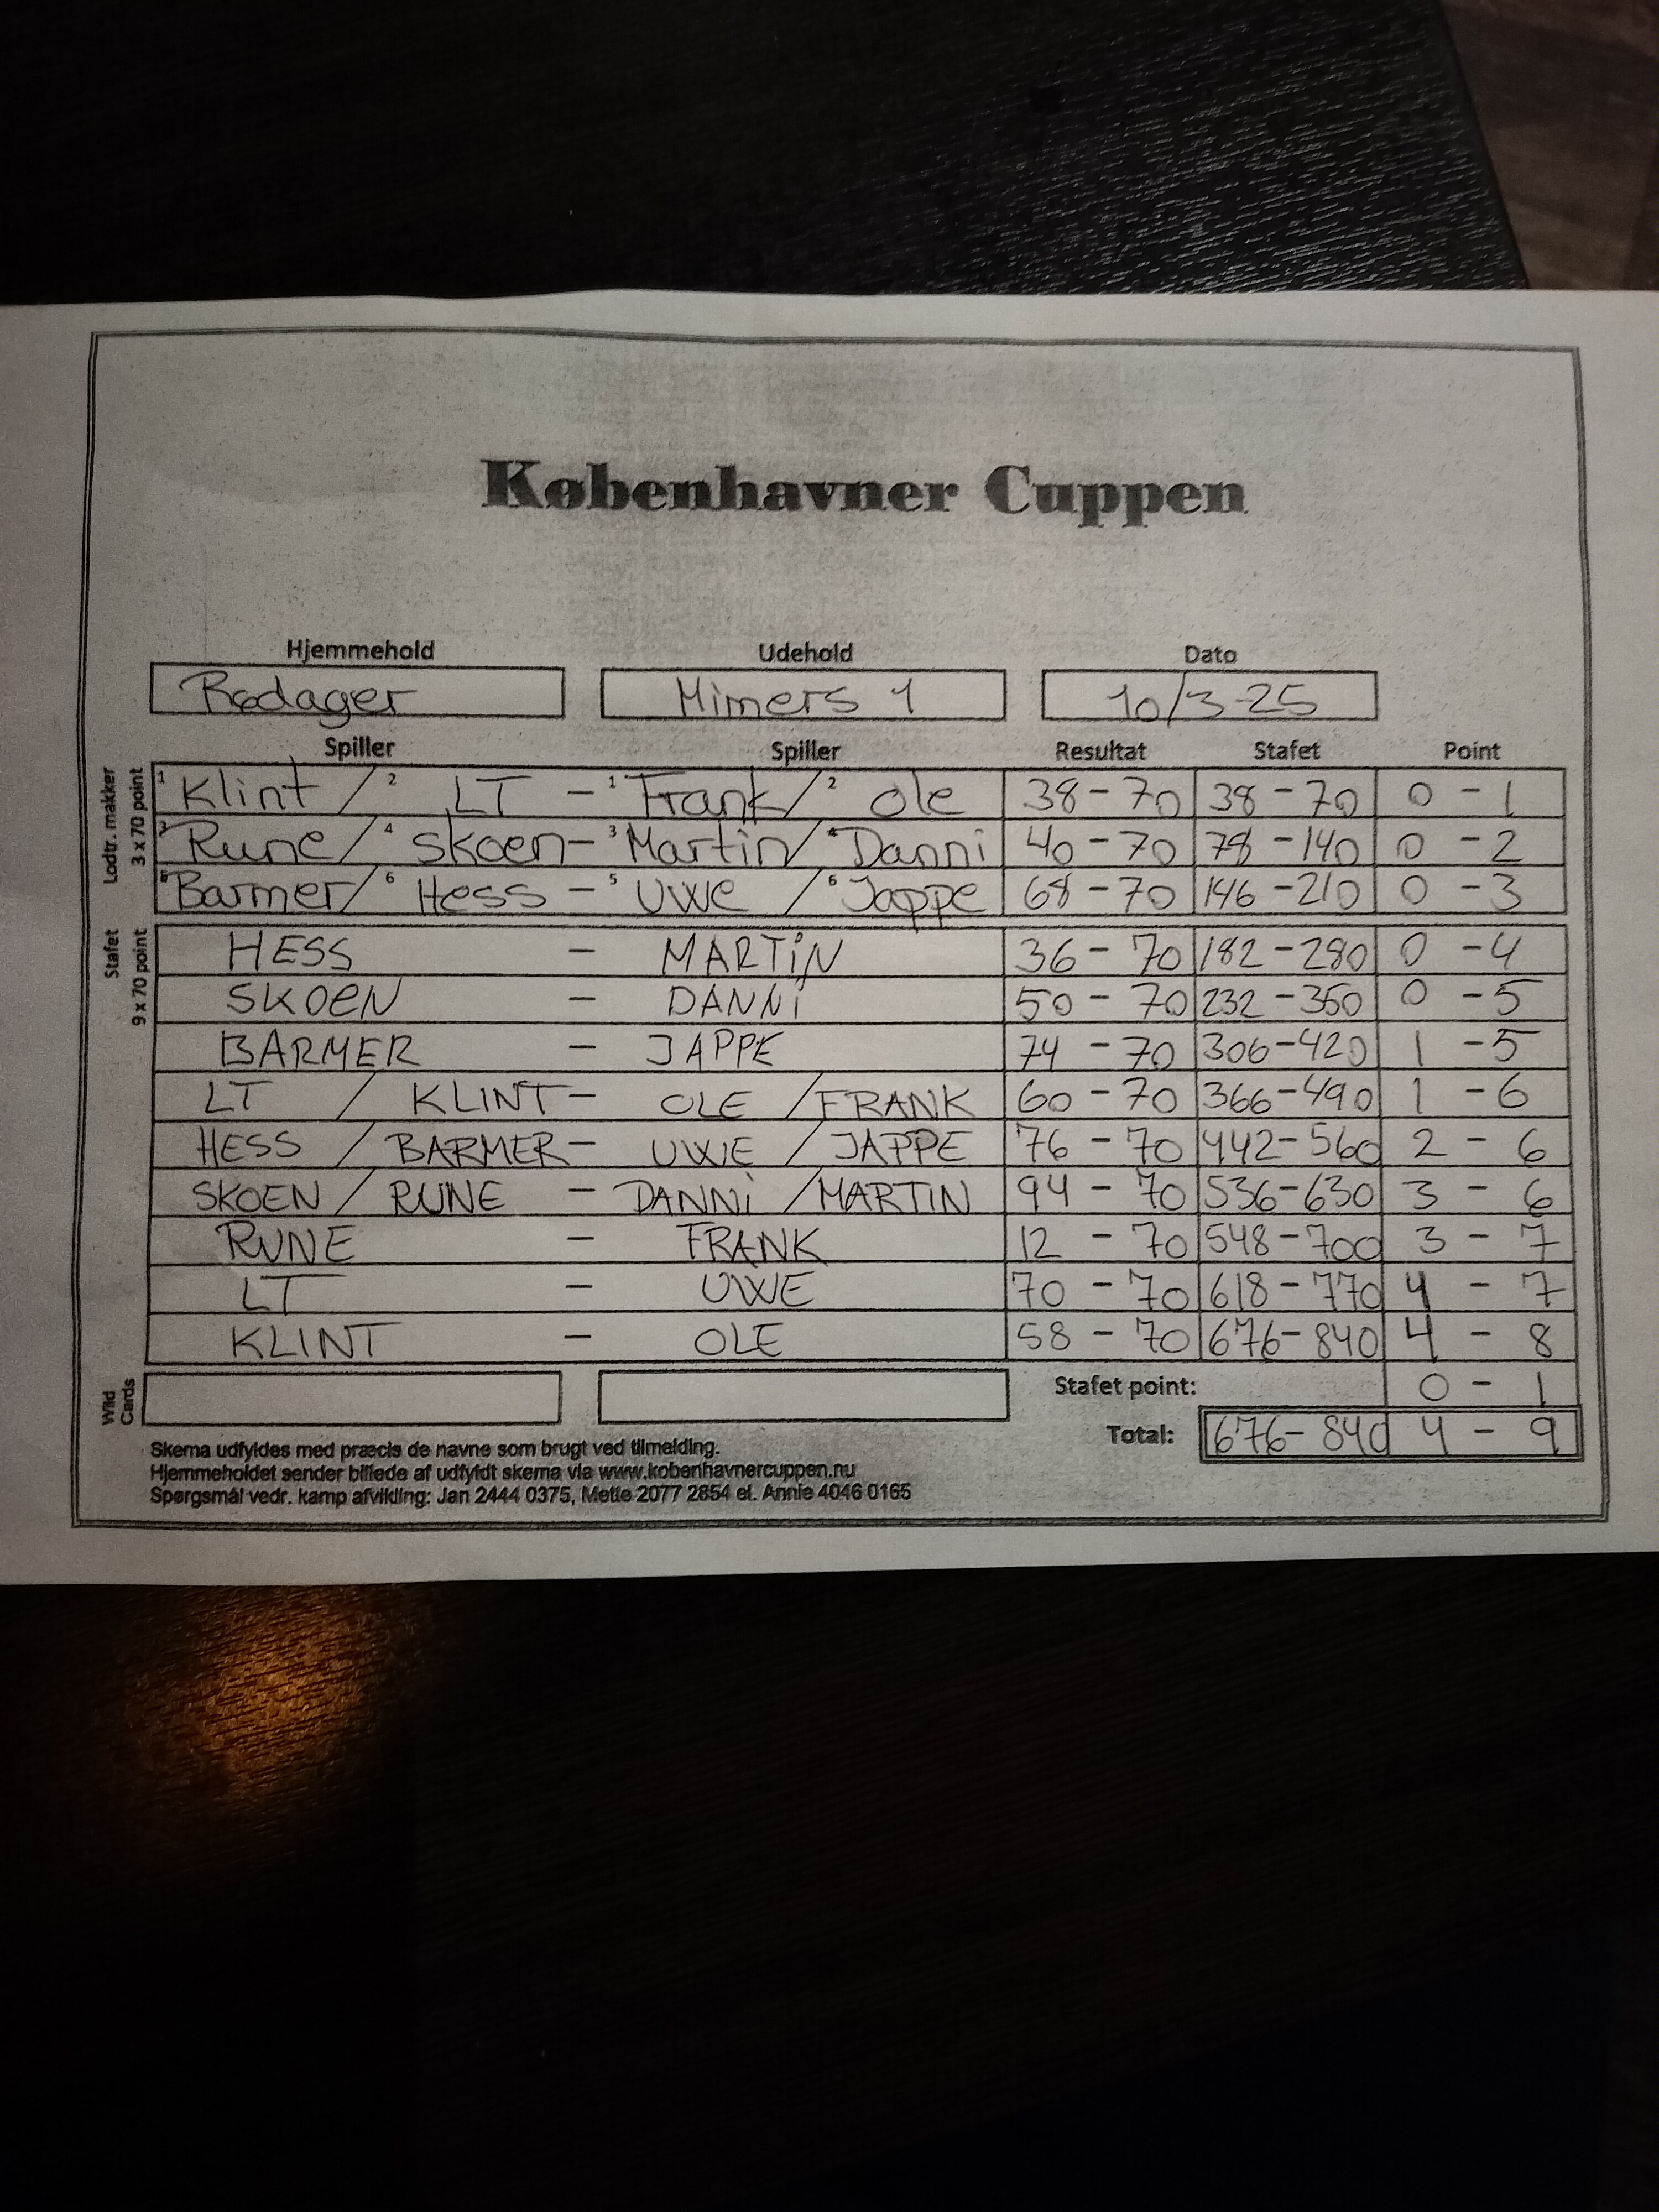 Københavner Cuppen
Hjemmehold Udehold Dato
Rødager Mimers 1 10/3-25
Spiller Spiller Resultat Stafet Point
Lodtr. makker
3 x 70 point
1 Klint / 2 LT - 1 Frank / 2 Ole 38 - 70 38 - 70 0 - 1
3 Rune / 4 Skoen - 3 Martin / 4 Danni 40 - 70 78 - 140 0 - 2
5 Barmer / 6 Hess - 5 Uwe / 6 Jappe 68 - 70 146 - 210 0 - 3
Stafet
9 x 70 point
HESS - MARTiN 36 - 70 182 - 280 0 - 4
SKOEN - DANNi 50 - 70 232 - 350 0 - 5
BARMER - JAPPE 74 - 70 306 - 420 1 - 5
LT / KLINT - OLE / FRANK 60 - 70 366 - 490 1 - 6
HESS / BARMER - UWE / JAPPE 76 - 70 442 - 560 2 - 6
SKOEN / RUNE - DANNi / MARTIN 94 - 70 536 - 630 3 - 6
RUNE - FRANK 12 - 70 548 - 700 3 - 7
LT - UWE 70 - 70 618 - 770 4 - 7
KLINT - OLE 58 - 70 676 - 840 4 - 8
Wild
Cards
Stafet point: 0 - 1
Total: 676 - 840 4 - 9
Skema udfyldes med præcis de navne som brugt ved tilmelding.
Hjemmeholdet sender billede af udfyldt skema via www.kobenhavnercuppen.nu
Spørgsmål vedr. kamp afvikling: Jan 2444 0375, Mette 2077 2854 el. Annie 4046 0165